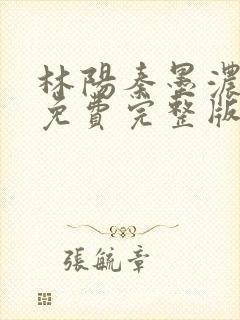 林陽秦墨濃
免費完整版
張毓章